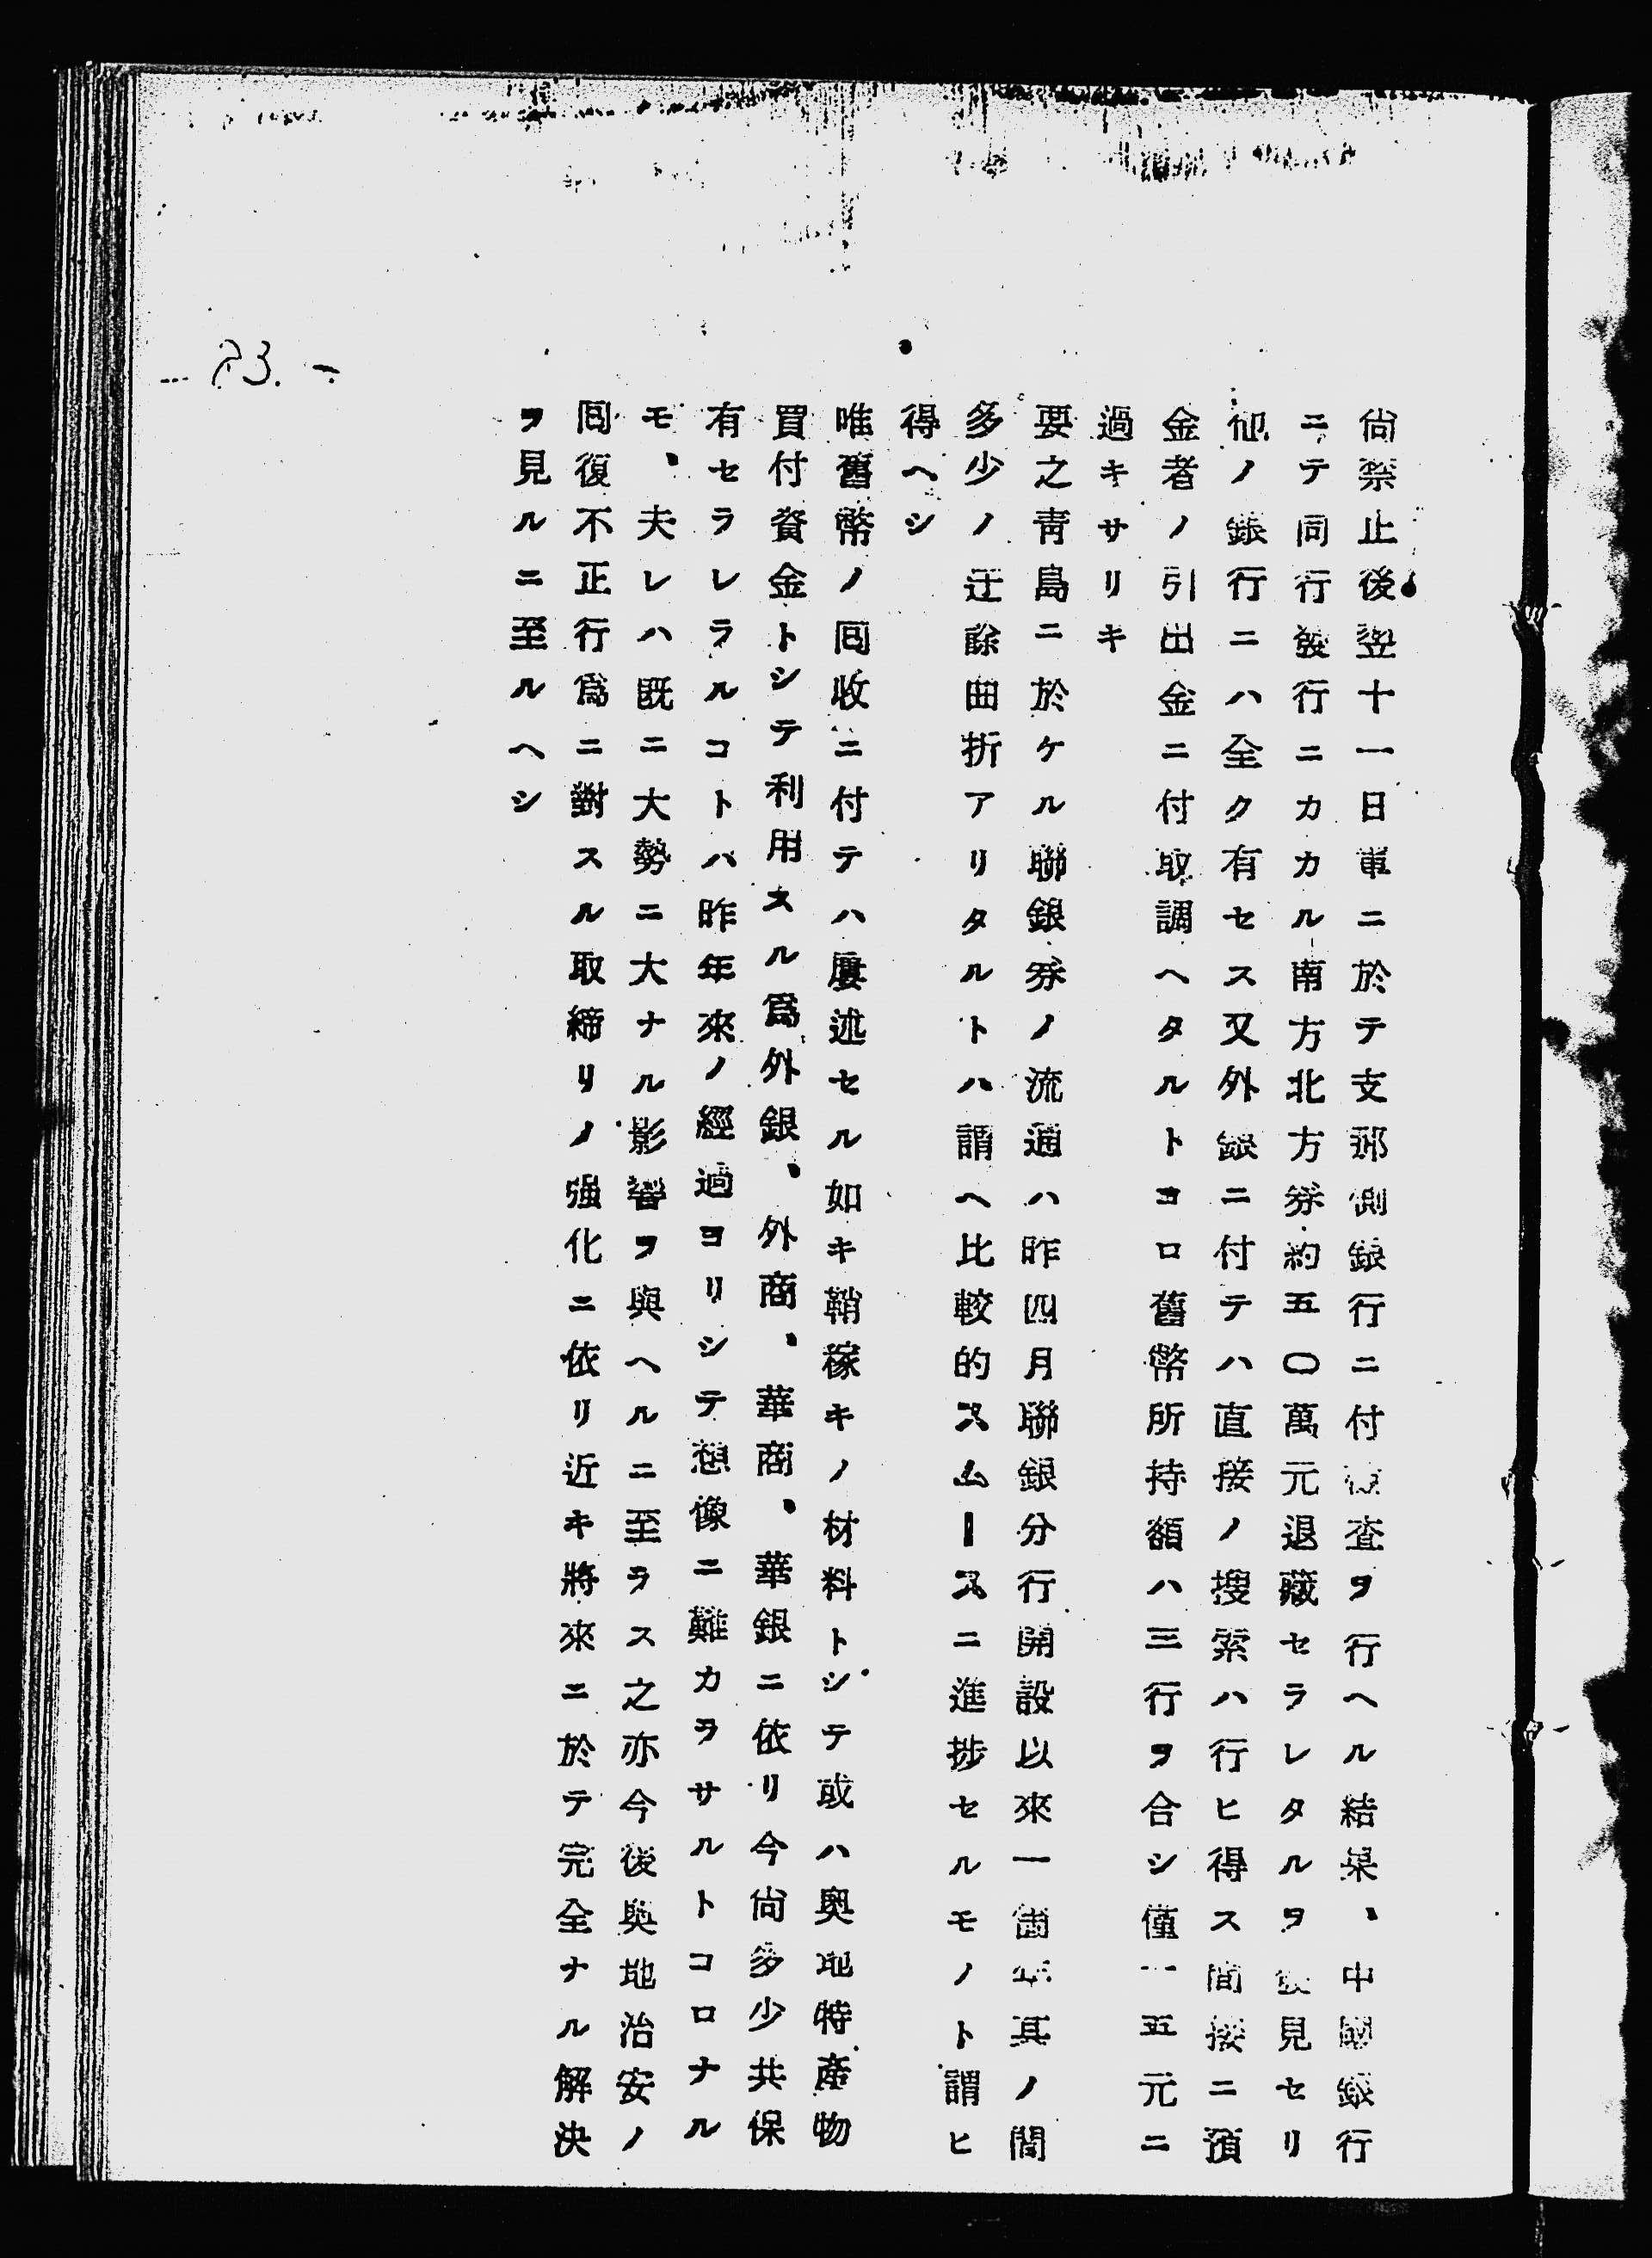 尙禁止後翌十一日軍ニ於テ支那側銀行ニ付檢査ヲ行ヘル結果、中國銀行
ニテ同行發行ニカカル南方北方券約五〇萬元退藏セラレタルヲ發見セリ
他ノ銀行ニハ全ク有セス又外銀ニ付テハ直接ノ搜索ハ行ヒ得ス間接ニ預
金者ノ引出金ニ付取調ヘタルトコロ舊幣所持額ハ三行ヲ合シ僅一五元ニ
過キサリキ
要之靑島ニ於ケル聯銀券ノ流通ハ昨四月聯銀分行開設以來一個年其ノ間
多少ノ迂餘曲折アリタルトハ謂ヘ比較的スムースニ進捗セルモノト謂ヒ
得ヘシ
唯舊幣ノ囘收ニ付テハ屢述セル如キ鞘稼キノ材料トシテ或ハ奧地特產物
買付資金トシテ利用スル爲外銀、外商、華商、華銀ニ依リ今尙多少共保
有セラレラルコトハ昨年來ノ經過ヨリシテ想像ニ難カラサルトコロナル
モ、夫レハ既ニ大勢ニ大ナル影響ヲ與ヘルニ至ラス之亦今後奧地治安ノ
囘復不正行爲ニ對スル取締リノ强化ニ依リ近キ將來ニ於テ完全ナル解決
ヲ見ルニ至ルヘシ